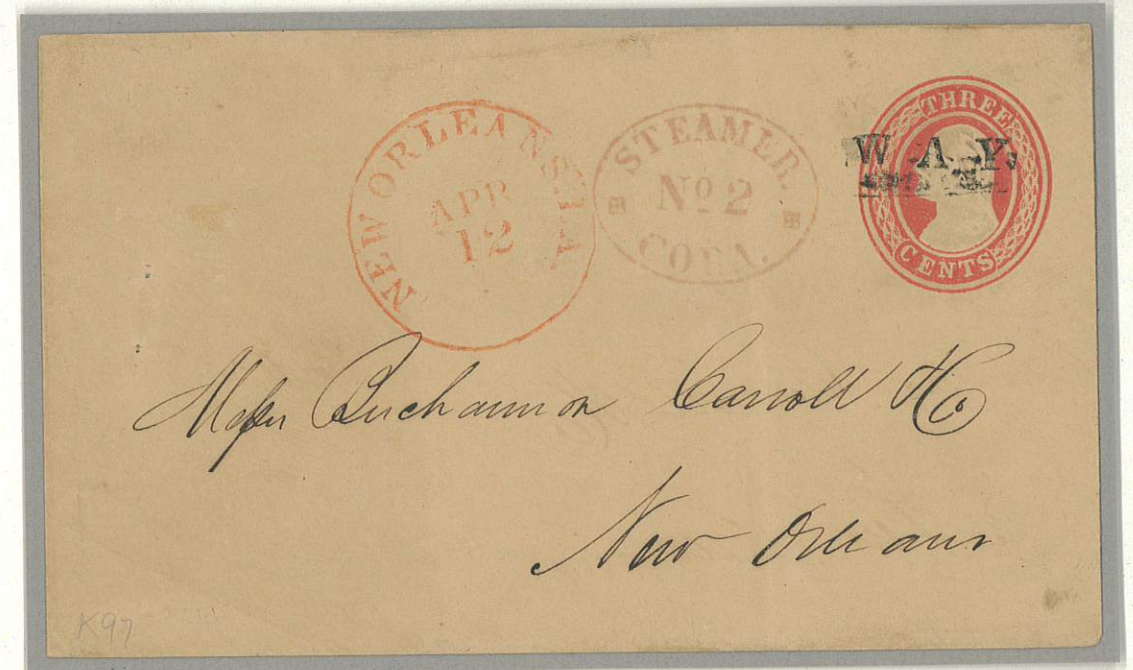 NEW ORLEANS LA
APR
12
STEAMER.
No 2
CORA.
THREE
CENTS
W A Y
Messrs Buchannon Carroll & Co
New Orleans
K97